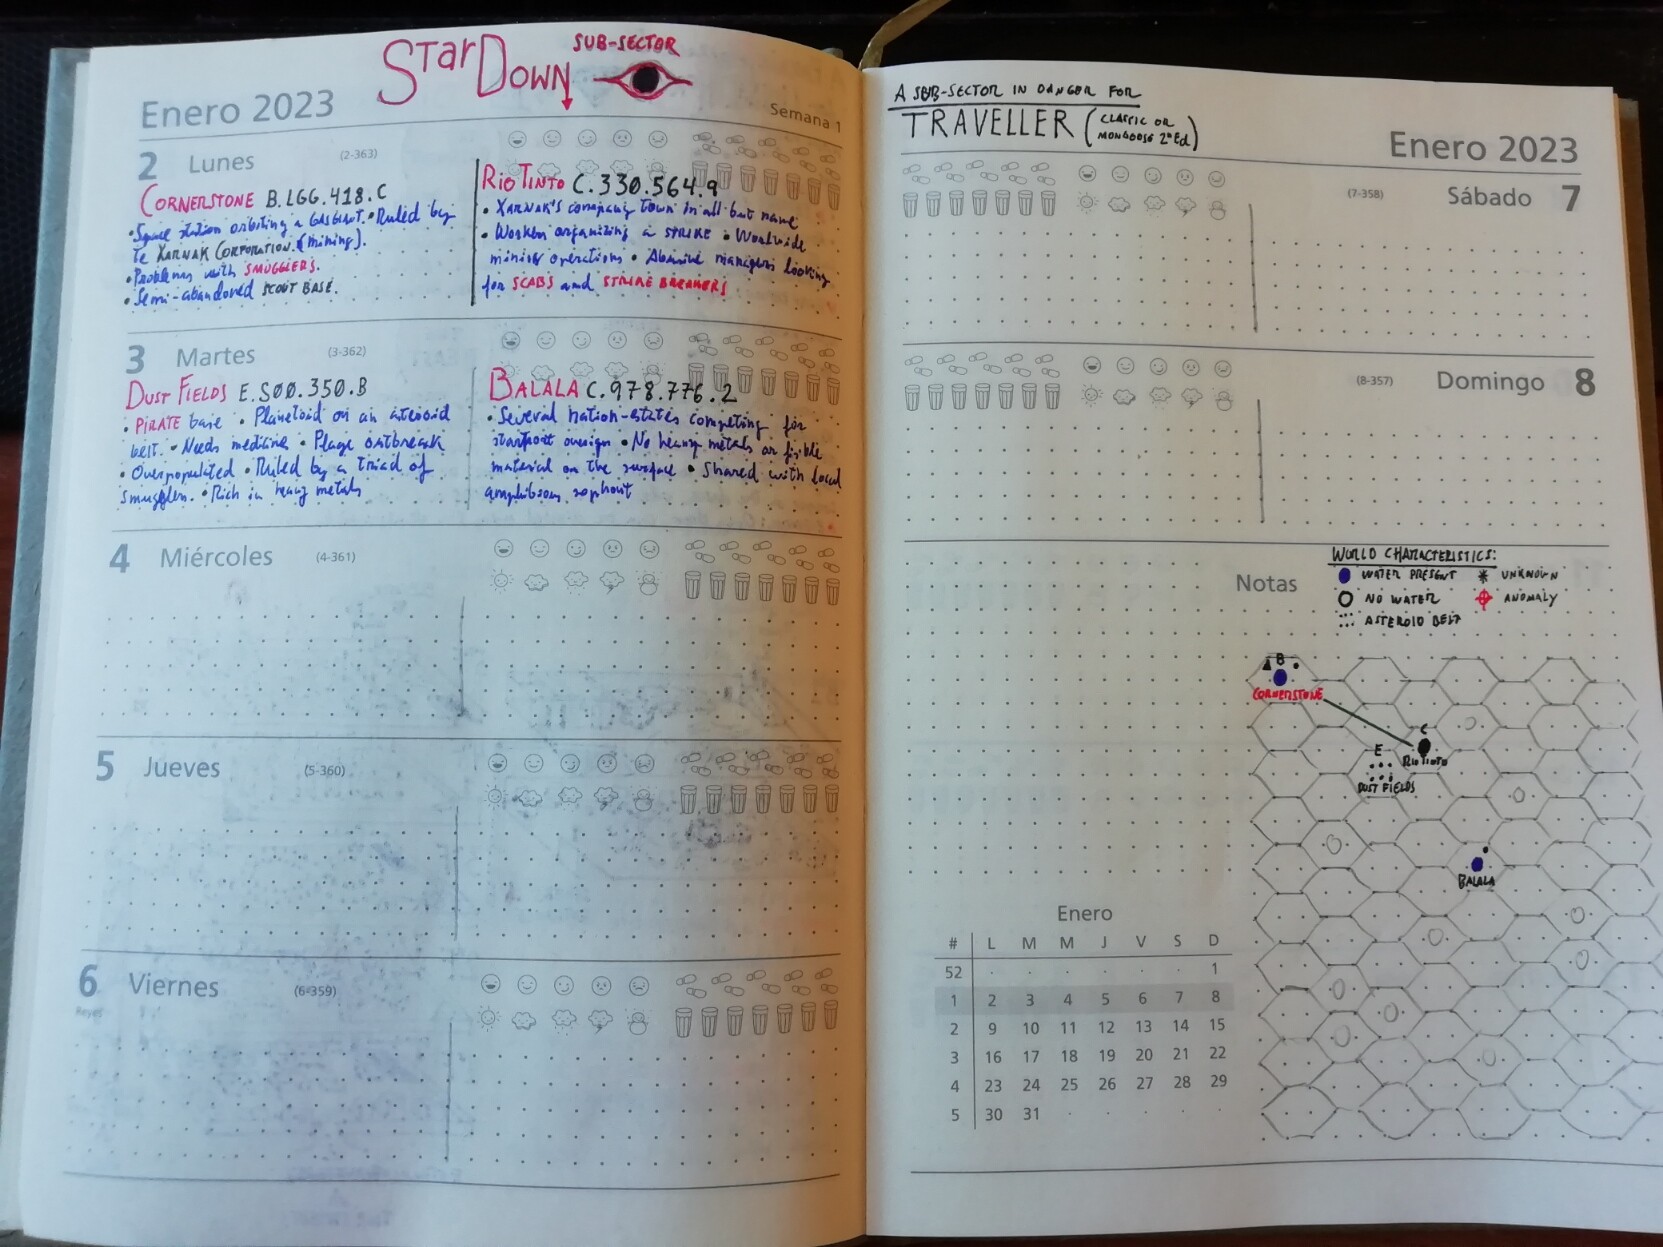 StarDown
SUB-SECTOR
Enero 2023
Semana 1
2 Lunes
(2-363)
CORNERSTONE B.LGG.418.C
• Space station orbiting a GAS GIANT. • Ruled by
te XARNAK CORPORATION (mining).
• Problems with SMUGGLERS.
• Semi-abandoned SCOUT BASE.
RIO TINTO C.330.564.9
• XARNAK's company town in all but name
• Workers organizing a STRIKE • Worldwide
mining operations • Abusive managers looking
for SCABS and STRIKE BREAKERS
3 Martes
(3-362)
DUST FIELDS E.S00.350.B
• PIRATE base • Planetoid on an asteroid
belt. • Needs medicine • Plage outbreak
• Overpopulated • Ruled by a triad of
smugglers. • Rich in heavy metals
BALALA C.978.776.2
• Several nation-states competing for
starport • No heavy metals or fisible
material on the surface • Shared with local
amphibious sophont
4 Miércoles
(4-361)
5 Jueves
(5-360)
6 Viernes
(6-359)
Reyes
A SUB-SECTOR IN DANGER FOR
TRAVELLER (CLASSIC OR
MONGOOSE 2ª Ed)
Enero 2023
(7-358)
Sábado 7
(8-357)
Domingo 8
Notas
WORLD CHARACTERISTICS:
WATER PRESENT
UNKNOWN
NO WATER
ANOMALY
ASTEROID BELT
B
CORNERSTONE
C
RIO TINTO
E
DUST FIELDS
BALALA
Enero
# L M M J V S D
52 · · · · · · 1
1 2 3 4 5 6 7 8
2 9 10 11 12 13 14 15
3 16 17 18 19 20 21 22
4 23 24 25 26 27 28 29
5 30 31 · · · · ·